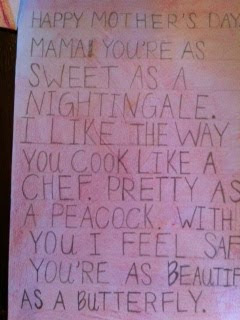 HAPPY MOTHER'S DAY
MAMA! YOU'RE AS
SWEET AS A
NIGHTINGALE.
I LIKE THE WAY
YOU COOK LIKE A
CHEF. PRETTY AS
A PEACOCK. WITH
YOU I FEEL SAF
YOU'RE AS BEAUTIF
AS A BUTTERFLY.